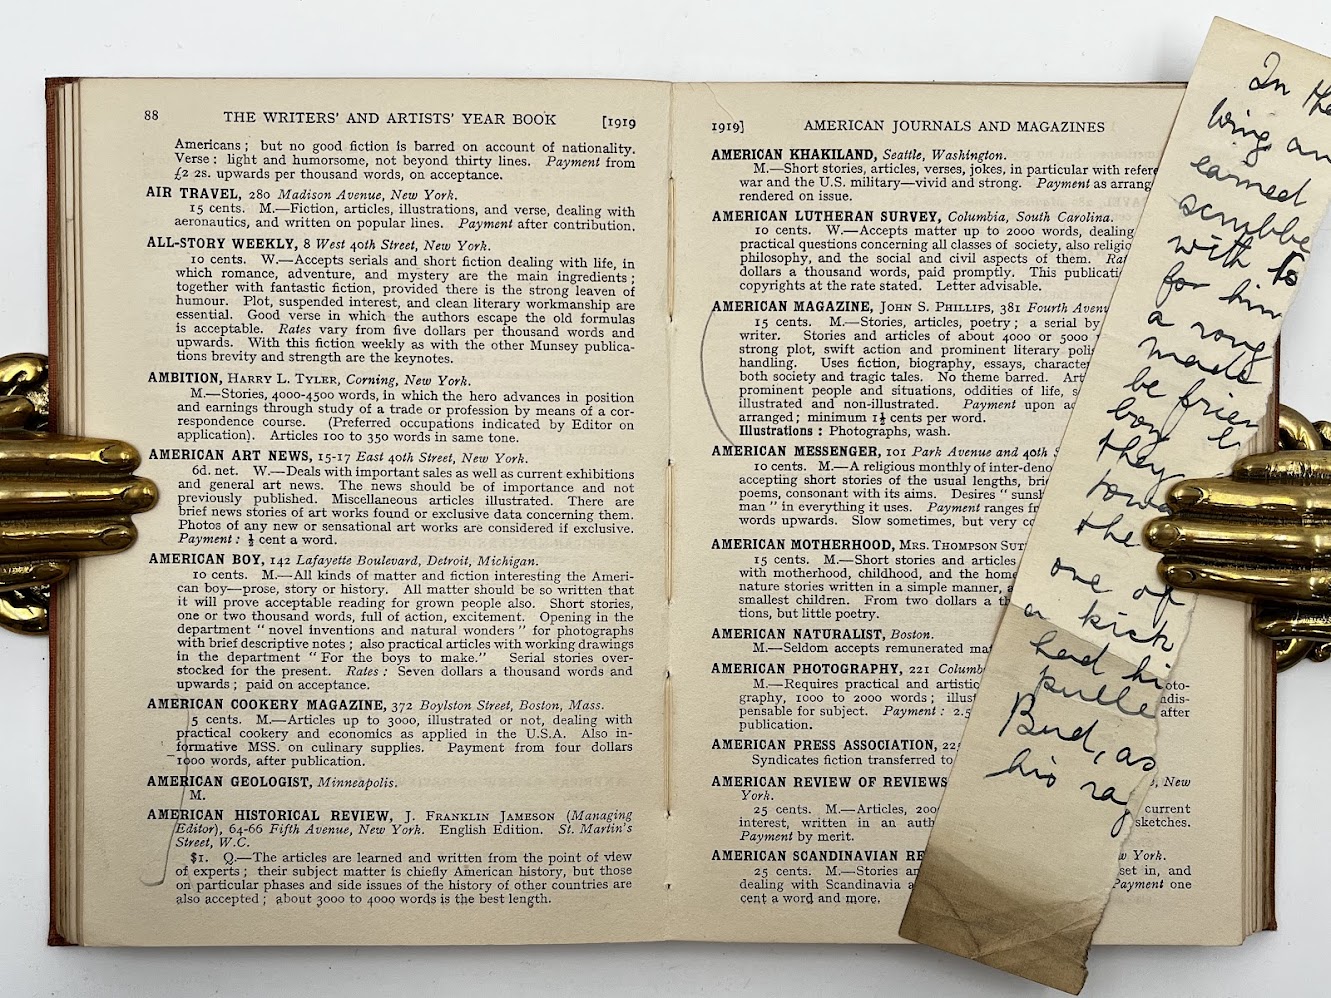 88 THE WRITERS' AND ARTISTS' YEAR BOOK [1919
Americans; but no good fiction is barred on account of nationality.
Verse: light and humorsome, not beyond thirty lines. Payment from
£2 2s. upwards per thousand words, on acceptance.
AIR TRAVEL, 280 Madison Avenue, New York.
15 cents. M.—Fiction, articles, illustrations, and verse, dealing with
aeronautics, and written on popular lines. Payment after contribution.
ALL-STORY WEEKLY, 8 West 40th Street, New York.
10 cents. W.—Accepts serials and short fiction dealing with life, in
which romance, adventure, and mystery are the main ingredients;
together with fantastic fiction, provided there is the strong leaven of
humour. Plot, suspended interest, and clean literary workmanship are
essential. Good verse in which the authors escape the old formulas
is acceptable. Rates vary from five dollars per thousand words and
upwards. With this fiction weekly as with the other Munsey publica-
tions brevity and strength are the keynotes.
AMBITION, HARRY L. TYLER, Corning, New York.
M.—Stories, 4000-4500 words, in which the hero advances in position
and earnings through study of a trade or profession by means of a cor-
respondence course. (Preferred occupations indicated by Editor on
application). Articles 100 to 350 words in same tone.
AMERICAN ART NEWS, 15-17 East 40th Street, New York.
6d. net. W.—Deals with important sales as well as current exhibitions
and general art news. The news should be of importance and not
previously published. Miscellaneous articles illustrated. There are
brief news stories of art works found or exclusive data concerning them.
Photos of any new or sensational art works are considered if exclusive.
Payment: ½ cent a word.
AMERICAN BOY, 142 Lafayette Boulevard, Detroit, Michigan.
10 cents. M.—All kinds of matter and fiction interesting the Ameri-
can boy—prose, story or history. All matter should be so written that
it will prove acceptable reading for grown people also. Short stories,
one or two thousand words, full of action, excitement. Opening in the
department "novel inventions and natural wonders" for photographs
with brief descriptive notes; also practical articles with working drawings
in the department "For the boys to make." Serial stories over-
stocked for the present. Rates: Seven dollars a thousand words and
upwards; paid on acceptance.
AMERICAN COOKERY MAGAZINE, 372 Boylston Street, Boston, Mass.
5 cents. M.—Articles up to 3000, illustrated or not, dealing with
practical cookery and economics as applied in the U.S.A. Also in-
formative MSS. on culinary supplies. Payment from four dollars
1000 words, after publication.
AMERICAN GEOLOGIST, Minneapolis.
M.
AMERICAN HISTORICAL REVIEW, J. FRANKLIN JAMESON (Managing
Editor), 64-66 Fifth Avenue, New York. English Edition. St. Martin's
Street, W.C.
$1. Q.—The articles are learned and written from the point of view
of experts; their subject matter is chiefly American history, but those
on particular phases and side issues of the history of other countries are
also accepted; about 3000 to 4000 words is the best length.
1919] AMERICAN JOURNALS AND MAGAZINES
AMERICAN KHAKILAND, Seattle, Washington.
M.—Short stories, articles, verses, jokes, in particular with refere
war and the U.S. military—vivid and strong. Payment as arrang
rendered on issue.
AMERICAN LUTHERAN SURVEY, Columbia, South Carolina.
10 cents. W.—Accepts matter up to 2000 words, dealing
practical questions concerning all classes of society, also religio
philosophy, and the social and civil aspects of them. Ra
dollars a thousand words, paid promptly. This publicati
copyrights at the rate stated. Letter advisable.
AMERICAN MAGAZINE, JOHN S. PHILLIPS, 381 Fourth Aven
15 cents. M.—Stories, articles, poetry; a serial by
writer. Stories and articles of about 4000 or 5000
strong plot, swift action and prominent literary poli
handling. Uses fiction, biography, essays, characte
both society and tragic tales. No theme barred. Art
prominent people and situations, oddities of life, s
illustrated and non-illustrated. Payment upon ac
arranged; minimum 1½ cents per word.
Illustrations: Photographs, wash.
AMERICAN MESSENGER, 101 Park Avenue and 40th S
10 cents. M.—A religious monthly of inter-deno
accepting short stories of the usual lengths, brie
poems, consonant with its aims. Desires "sunsh
man" in everything it uses. Payment ranges fr
words upwards. Slow sometimes, but very co
AMERICAN MOTHERHOOD, MRS. THOMPSON SUT
15 cents. M.—Short stories and articles
with motherhood, childhood, and the home
nature stories written in a simple manner, a
smallest children. From two dollars a th
tions, but little poetry.
AMERICAN NATURALIST, Boston.
M.—Seldom accepts remunerated mat
AMERICAN PHOTOGRAPHY, 221 Columb
M.—Requires practical and artistic oto-
graphy, 1000 to 2000 words; illust ndis-
pensable for subject. Payment: 2.5 after
publication.
AMERICAN PRESS ASSOCIATION, 225
Syndicates fiction transferred to
AMERICAN REVIEW OF REVIEWS , New
York.
25 cents. M.—Articles, 200 current
interest, written in an auth sketches.
Payment by merit.
AMERICAN SCANDINAVIAN RE w York.
25 cents. M.—Stories an set in, and
dealing with Scandinavia a Payment one
cent a word and more.
In the
wing an
earned
scrubbe
with to
for him
a rong
made
be frien
boy
they
towa
the
one of
a kick
had hi
pulle
Bud, as
his rag